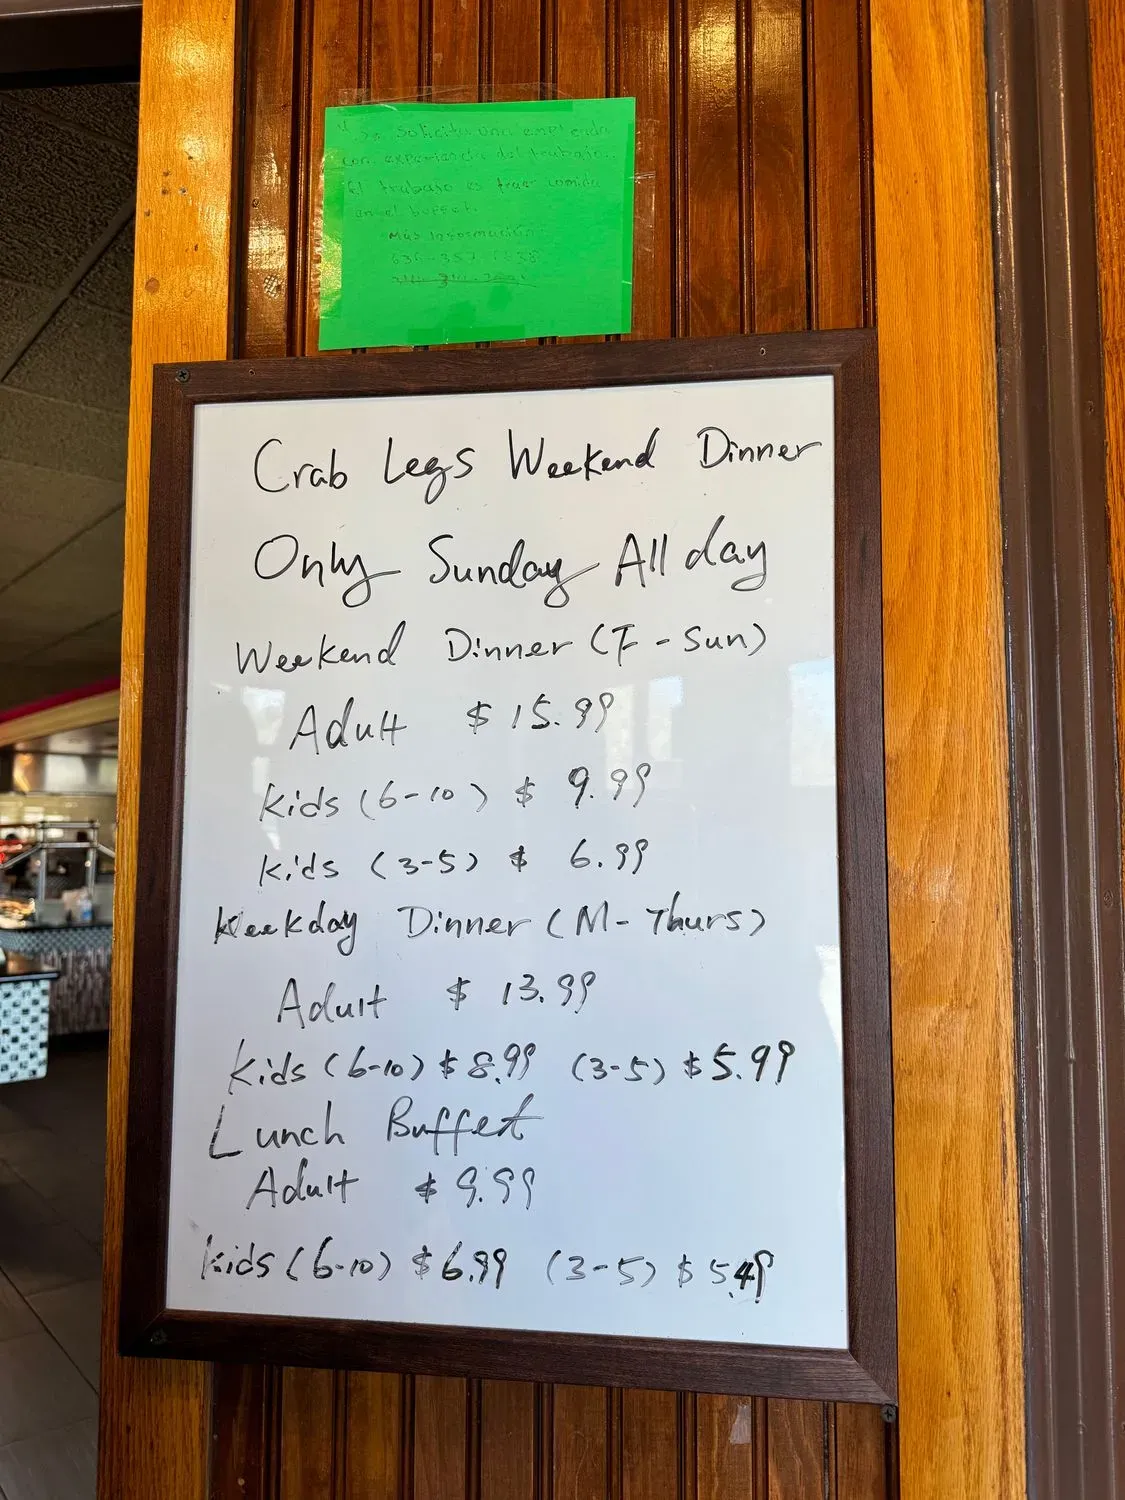 Se Solicita una empleada
con experiencia del trabajo.
El trabajo es traer comida
en el buffet.
Más Información
Crab Legs Weekend Dinner
Only Sunday All day
Weekend Dinner (F - Sun)
Adult $ 15.99
Kids (6-10) $ 9.99
Kids (3-5) $ 6.99
Weekday Dinner (M - Thurs)
Adult $ 13.99
Kids (6-10) $ 8.99 (3-5) $ 5.99
Lunch Buffet
Adult $ 9.99
Kids (6-10) $ 6.99 (3-5) $ 5.49